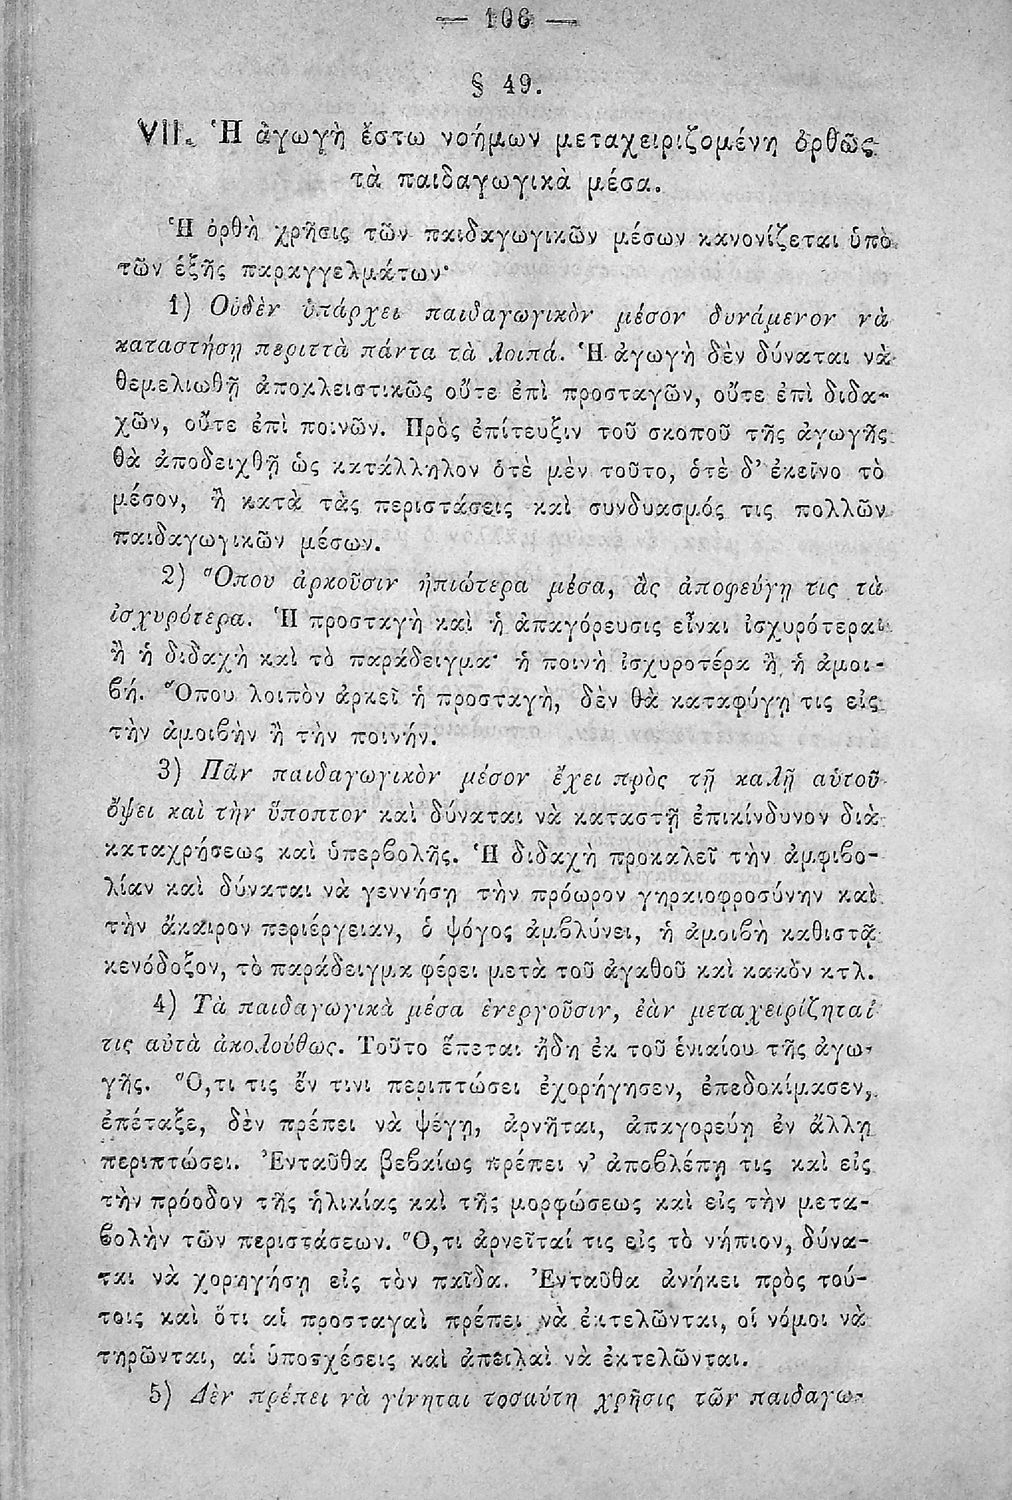 — 106 —
§ 49.
VII. Ἡ ἀγωγὴ ἔστω νοήμων μεταχειριζομένη ὀρθῶς
τὰ παιδαγωγικὰ μέσα.
Ἡ ὀρθὴ χρῆσις τῶν παιδαγωγικῶν μέσων κανονίζεται ὑπὸ
τῶν ἑξῆς παραγγελμάτων·
1) Οὐδὲν ὑπάρχει παιδαγωγικὸν μέσον δυνάμενον νὰ
καταστήσῃ περιττὰ πάντα τὰ λοιπά. Ἡ ἀγωγὴ δὲν δύναται νὰ
θεμελιωθῇ ἀποκλειστικῶς οὔτε ἐπὶ προσταγῶν, οὔτε ἐπὶ διδα-
χῶν, οὔτε ἐπὶ ποινῶν. Πρὸς ἐπίτευξιν τοῦ σκοποῦ τῆς ἀγωγῆς
θὰ ἀποδειχθῇ ὡς κατάλληλον ὁτὲ μὲν τοῦτο, ὁτὲ δ' ἐκεῖνο τὸ
μέσον, ἢ κατὰ τὰς περιστάσεις καὶ συνδυασμός τις πολλῶν
παιδαγωγικῶν μέσων.
2) Ὅπου ἀρκοῦσιν ἠπιώτερα μέσα, ἂς ἀποφεύγῃ τις τὰ
ἰσχυρότερα. Ἡ προσταγὴ καὶ ἡ ἀπαγόρευσις εἶναι ἰσχυρότεραι
ἢ ἡ διδαχὴ καὶ τὸ παράδειγμα· ἡ ποινὴ ἰσχυροτέρα ἢ ἡ ἀμοι-
βή. Ὅπου λοιπὸν ἀρκεῖ ἡ προσταγὴ, δὲν θὰ καταφύγῃ τις εἰς
τὴν ἀμοιβὴν ἢ τὴν ποινήν.
3) Πᾶν παιδαγωγικὸν μέσον ἔχει πρὸς τῇ καλῇ αὑτοῦ
ὄψει καὶ τὴν ὕποπτον καὶ δύναται νὰ καταστῇ ἐπικίνδυνον διὰ
καταχρήσεως καὶ ὑπερβολῆς. Ἡ διδαχὴ προκαλεῖ τὴν ἀμφιβο-
λίαν καὶ δύναται νὰ γεννήσῃ τὴν πρόωρον γηραιοφροσύνην καὶ
τὴν ἄκαιρον περιέργειαν, ὁ ψόγος ἀμβλύνει, ἡ ἀμοιβὴ καθιστᾷ
κενόδοξον, τὸ παράδειγμα φέρει μετὰ τοῦ ἀγαθοῦ καὶ κακὸν κτλ.
4) Τὰ παιδαγωγικὰ μέσα ἐνεργοῦσιν, ἐὰν μεταχειρίζηταί
τις αὐτὰ ἀκολούθως. Τοῦτο ἕπεται ἤδη ἐκ τοῦ ἑνιαίου τῆς ἀγω-
γῆς. Ὅ,τι τις ἔν τινι περιπτώσει ἐχορήγησεν, ἐπεδοκίμασεν,
ἐπέταξε, δὲν πρέπει νὰ ψέγῃ, ἀρνῆται, ἀπαγορεύῃ ἐν ἄλλῃ
περιπτώσει. Ἐνταῦθα βεβαίως πρέπει ν' ἀποβλέπῃ τις καὶ εἰς
τὴν πρόοδον τῆς ἡλικίας καὶ τῆς μορφώσεως καὶ εἰς τὴν μετα-
βολὴν τῶν περιστάσεων. Ὅ,τι ἀρνεῖταί τις εἰς τὸ νήπιον, δύνα-
ται νὰ χορηγήσῃ εἰς τὸν παῖδα. Ἐνταῦθα ἀνήκει πρὸς τού-
τοις καὶ ὅτι αἱ προσταγαὶ πρέπει νὰ ἐκτελῶνται, οἱ νόμοι νὰ
τηρῶνται, αἱ ὑποσχέσεις καὶ ἀπειλαὶ νὰ ἐκτελῶνται.
5) Δὲν πρέπει νὰ γίνηται τοσαύτη χρῆσις τῶν παιδαγω-